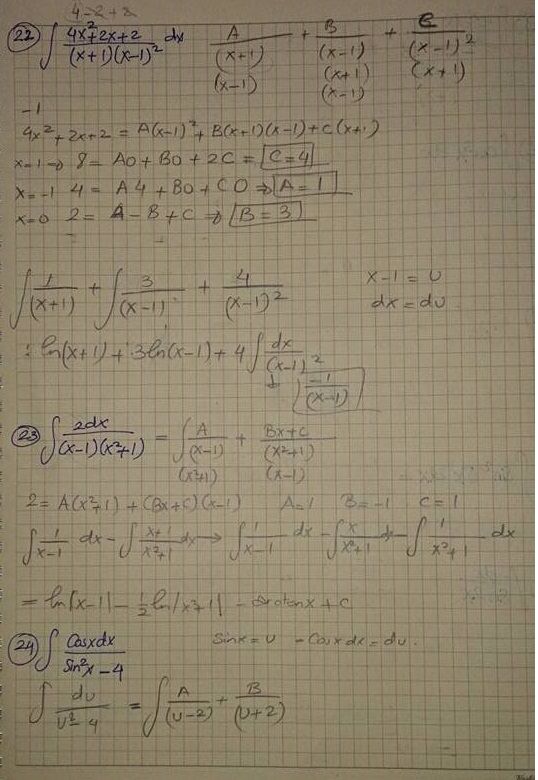 4-2+2
22) ∫ 4x²+2x+2 / (x+1)(x-1)² dx   A/(x+1) + B/(x-1) + C/(x-1)²
(x-1) (x+1) (x+1)
(x-1)
-1
4x²+2x+2 = A(x-1)² + B(x+1)(x-1) + C(x+1)
x=1 ⇒ 8 = A0 + B0 + 2C = C=4
x=-1 4 = A4 + B0 + C0 ⇒ A=1
x=0 2 = A - B + C ⇒ B=3
∫ 1/(x+1) + ∫ 3/(x-1) + 4/(x-1)²   x-1 = u
dx = du
: ln(x+1) + 3ln(x-1) + 4 ∫ dx/(x-1)²
↓ -1/(x-1)
23) ∫ 2dx / (x-1)(x²+1) = ∫ A/(x-1) + Bx+C/(x²+1)
(x²+1) (x-1)
2 = A(x²+1) + (Bx+C)(x-1)   A=1 B=-1 C=1
∫ 1/x-1 dx - ∫ x+1/x²+1 dx → ∫ 1/x-1 dx - ∫ x/x²+1 dx - ∫ 1/x²+1 dx
= ln|x-1| - 1/2 ln|x²+1| - arctanx + C
24) ∫ Cosxdx / Sin²x-4   Sinx = u - Cosxdx = du.
∫ du/u²-4 = ∫ A/(u-2) + B/(u+2)